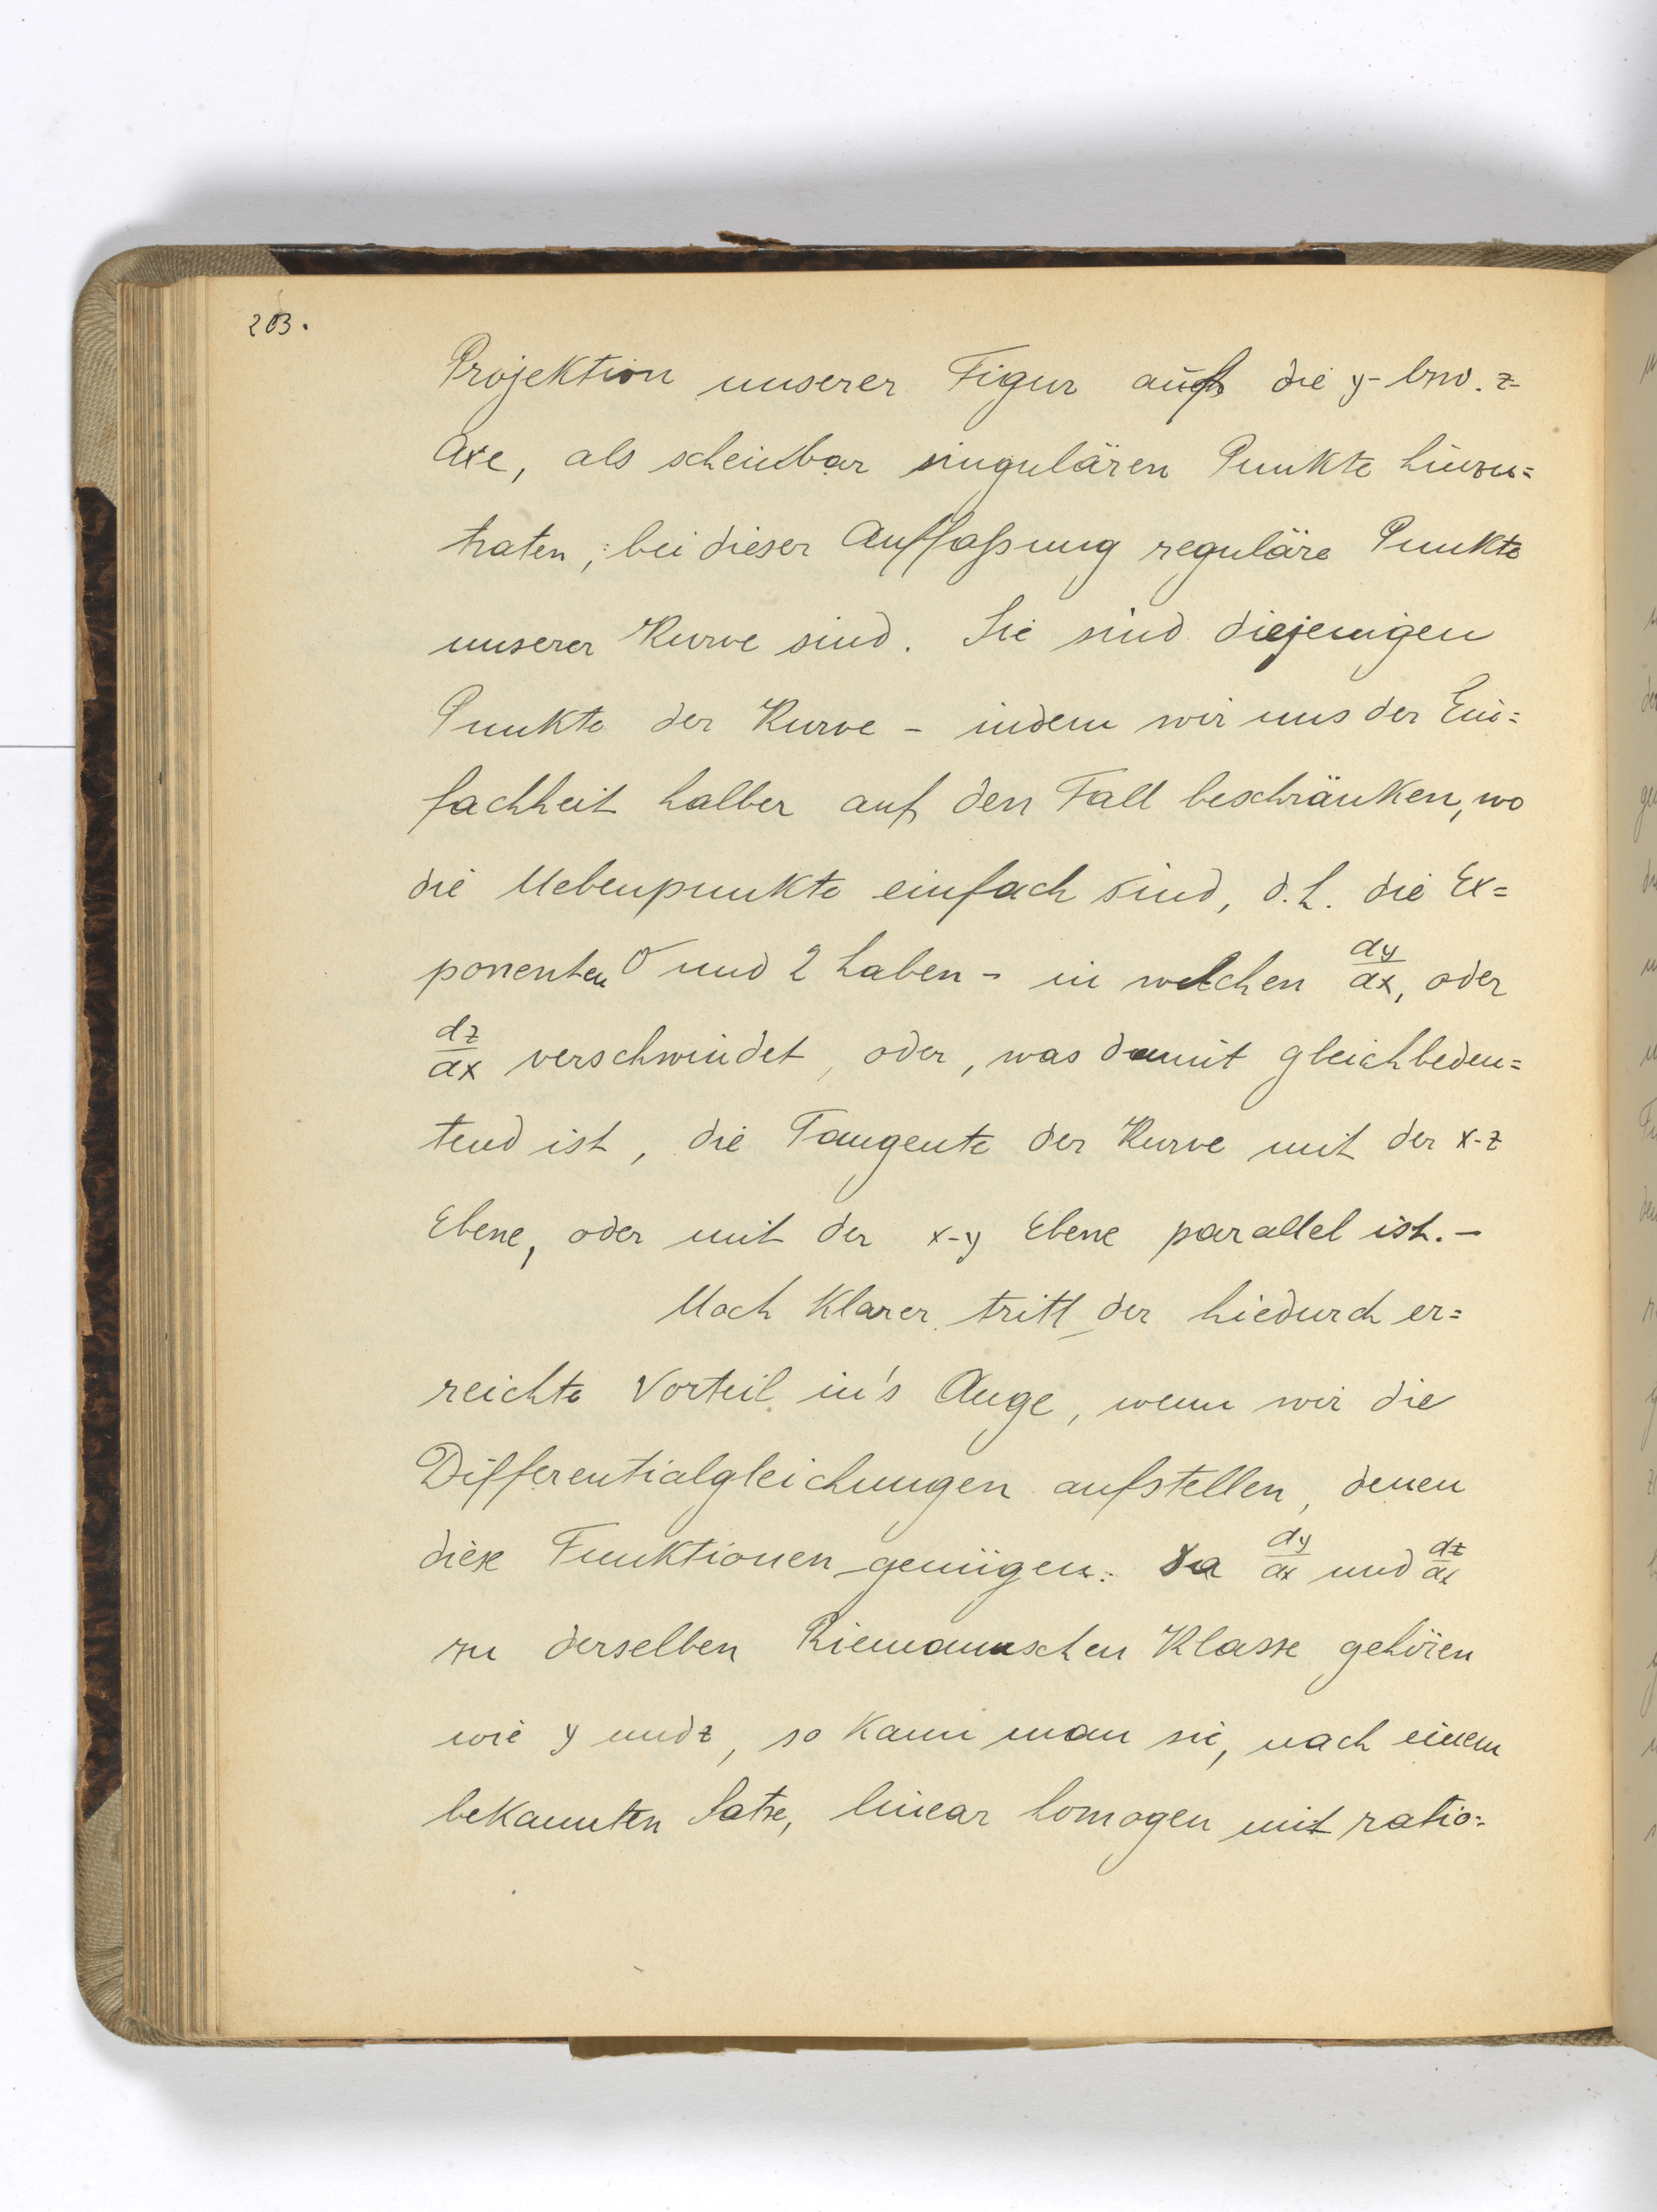 203.
Projektion unserer Figur auf die y- bzw. z-
Axe, als scheinbar singulären Punkte hinzu=
traten, bei dieser Auffaßung reguläre Punkte
unserer Kurve sind. Sie sind diejenigen
Punkte der Kurve - indem wir uns der Ein=
fachheit halber auf den Fall beschränken, wo
die Nebenpunkte einfach sind, d.h. die Ex=
ponenten 0 und 2 haben - in welchen dy/dx, oder
dz/dx verschwindet, oder, was damit gleichbedeu=
tend ist, die Tangente der Kurve mit der x-z
Ebene, oder mit der x-y Ebene parallel ist. -
Noch klarer tritt der hiedurch er=
reichte Vorteil in's Auge, wenn wir die
Differentialgleichungen aufstellen, denen
diese Funktionen genügen. Da dy/dx und dz/dx
zu derselben Riemannschen Klasse gehören
wie y und z, so kann man sie, nach einem
bekannten Satze, linear homogen mit ratio=